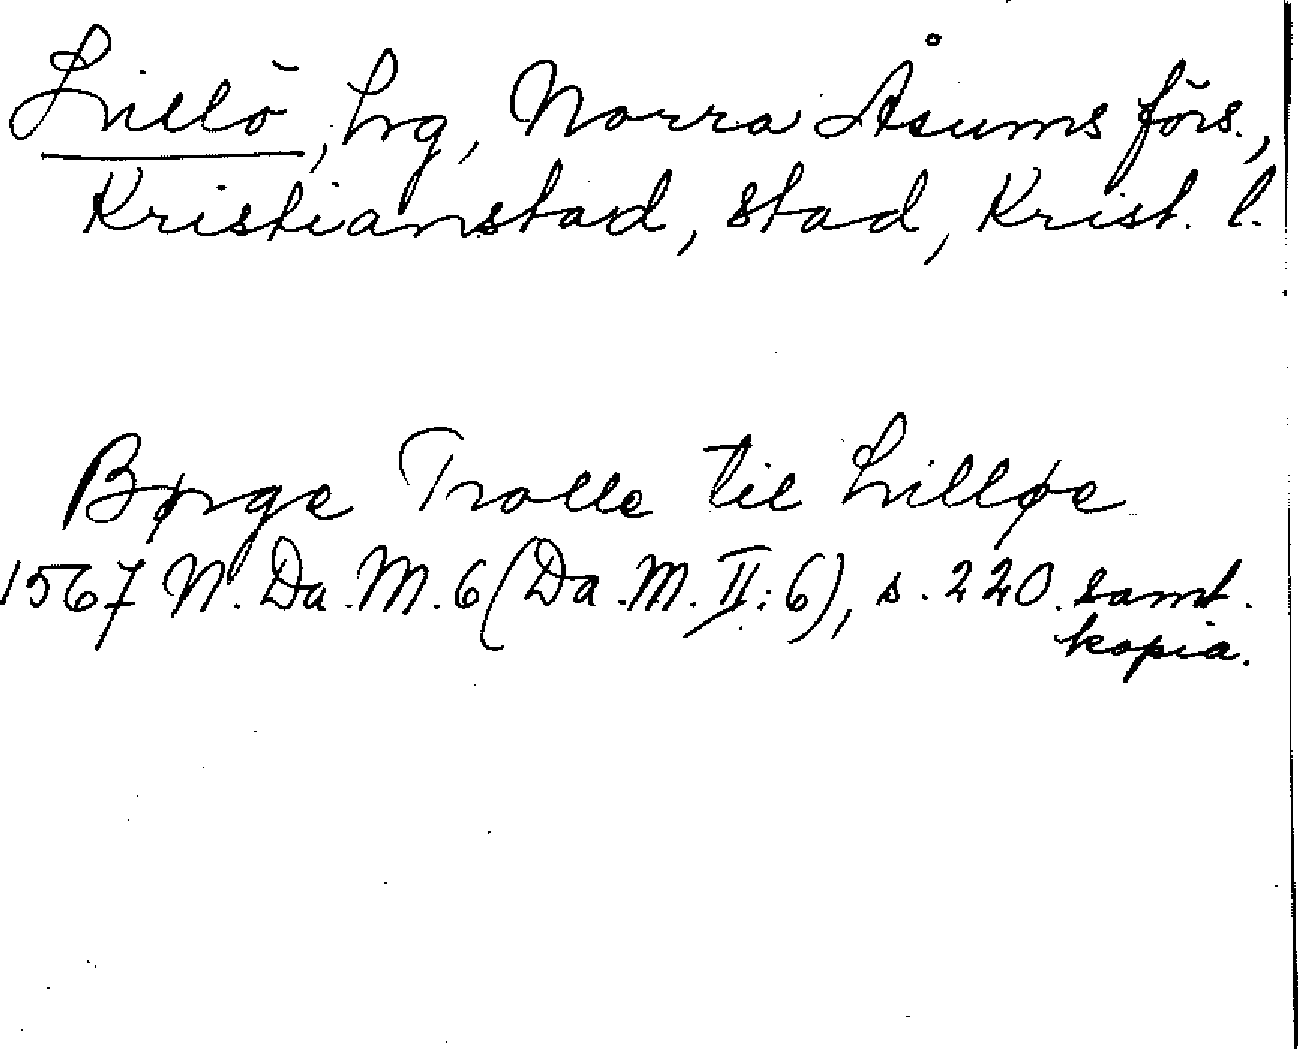 Lillö, hrg, Norra Åsums förs.,
Kristianstad, stad, Krist. l.
Børge Trolle til Lilløe
1567 N. Da. M. 6 (Da. M. II: 6), s. 220. samt.
kopia.